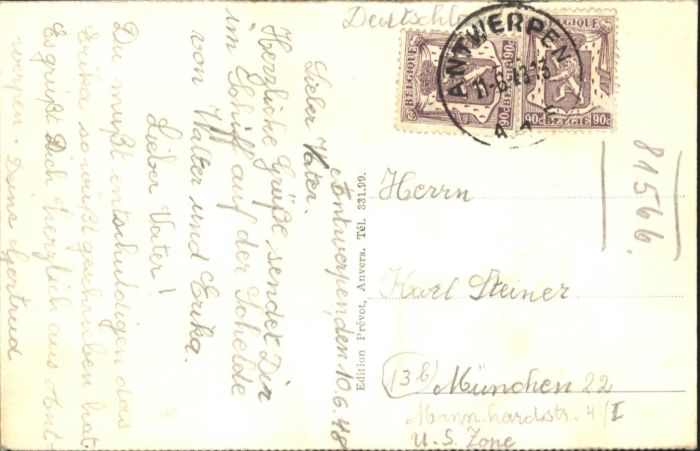 Antwerpen, den 10.6.48
Lieber Vater.
Herzliche Grüße sendet Dir
im Schiff auf der Schelde
von Walter und Erika.
Lieber Vater!
Du mußt entschuldigen das
Erika so wüßt geschrieben hat.
Es grüßt Dich herzlich aus Ant-
werpen. Deine Gertrud
Edition Prévot, Anvers. Tél. 331.99.
Deutschl
BELGIQUE
90c 90c
BELGIE
BELGIQUE
90c 90c
BELGIE
ANTWERPEN
81566
Herrn
Karl Steiner
(13b) München 22
Mannhardstr. 4/I
U.S. Zone